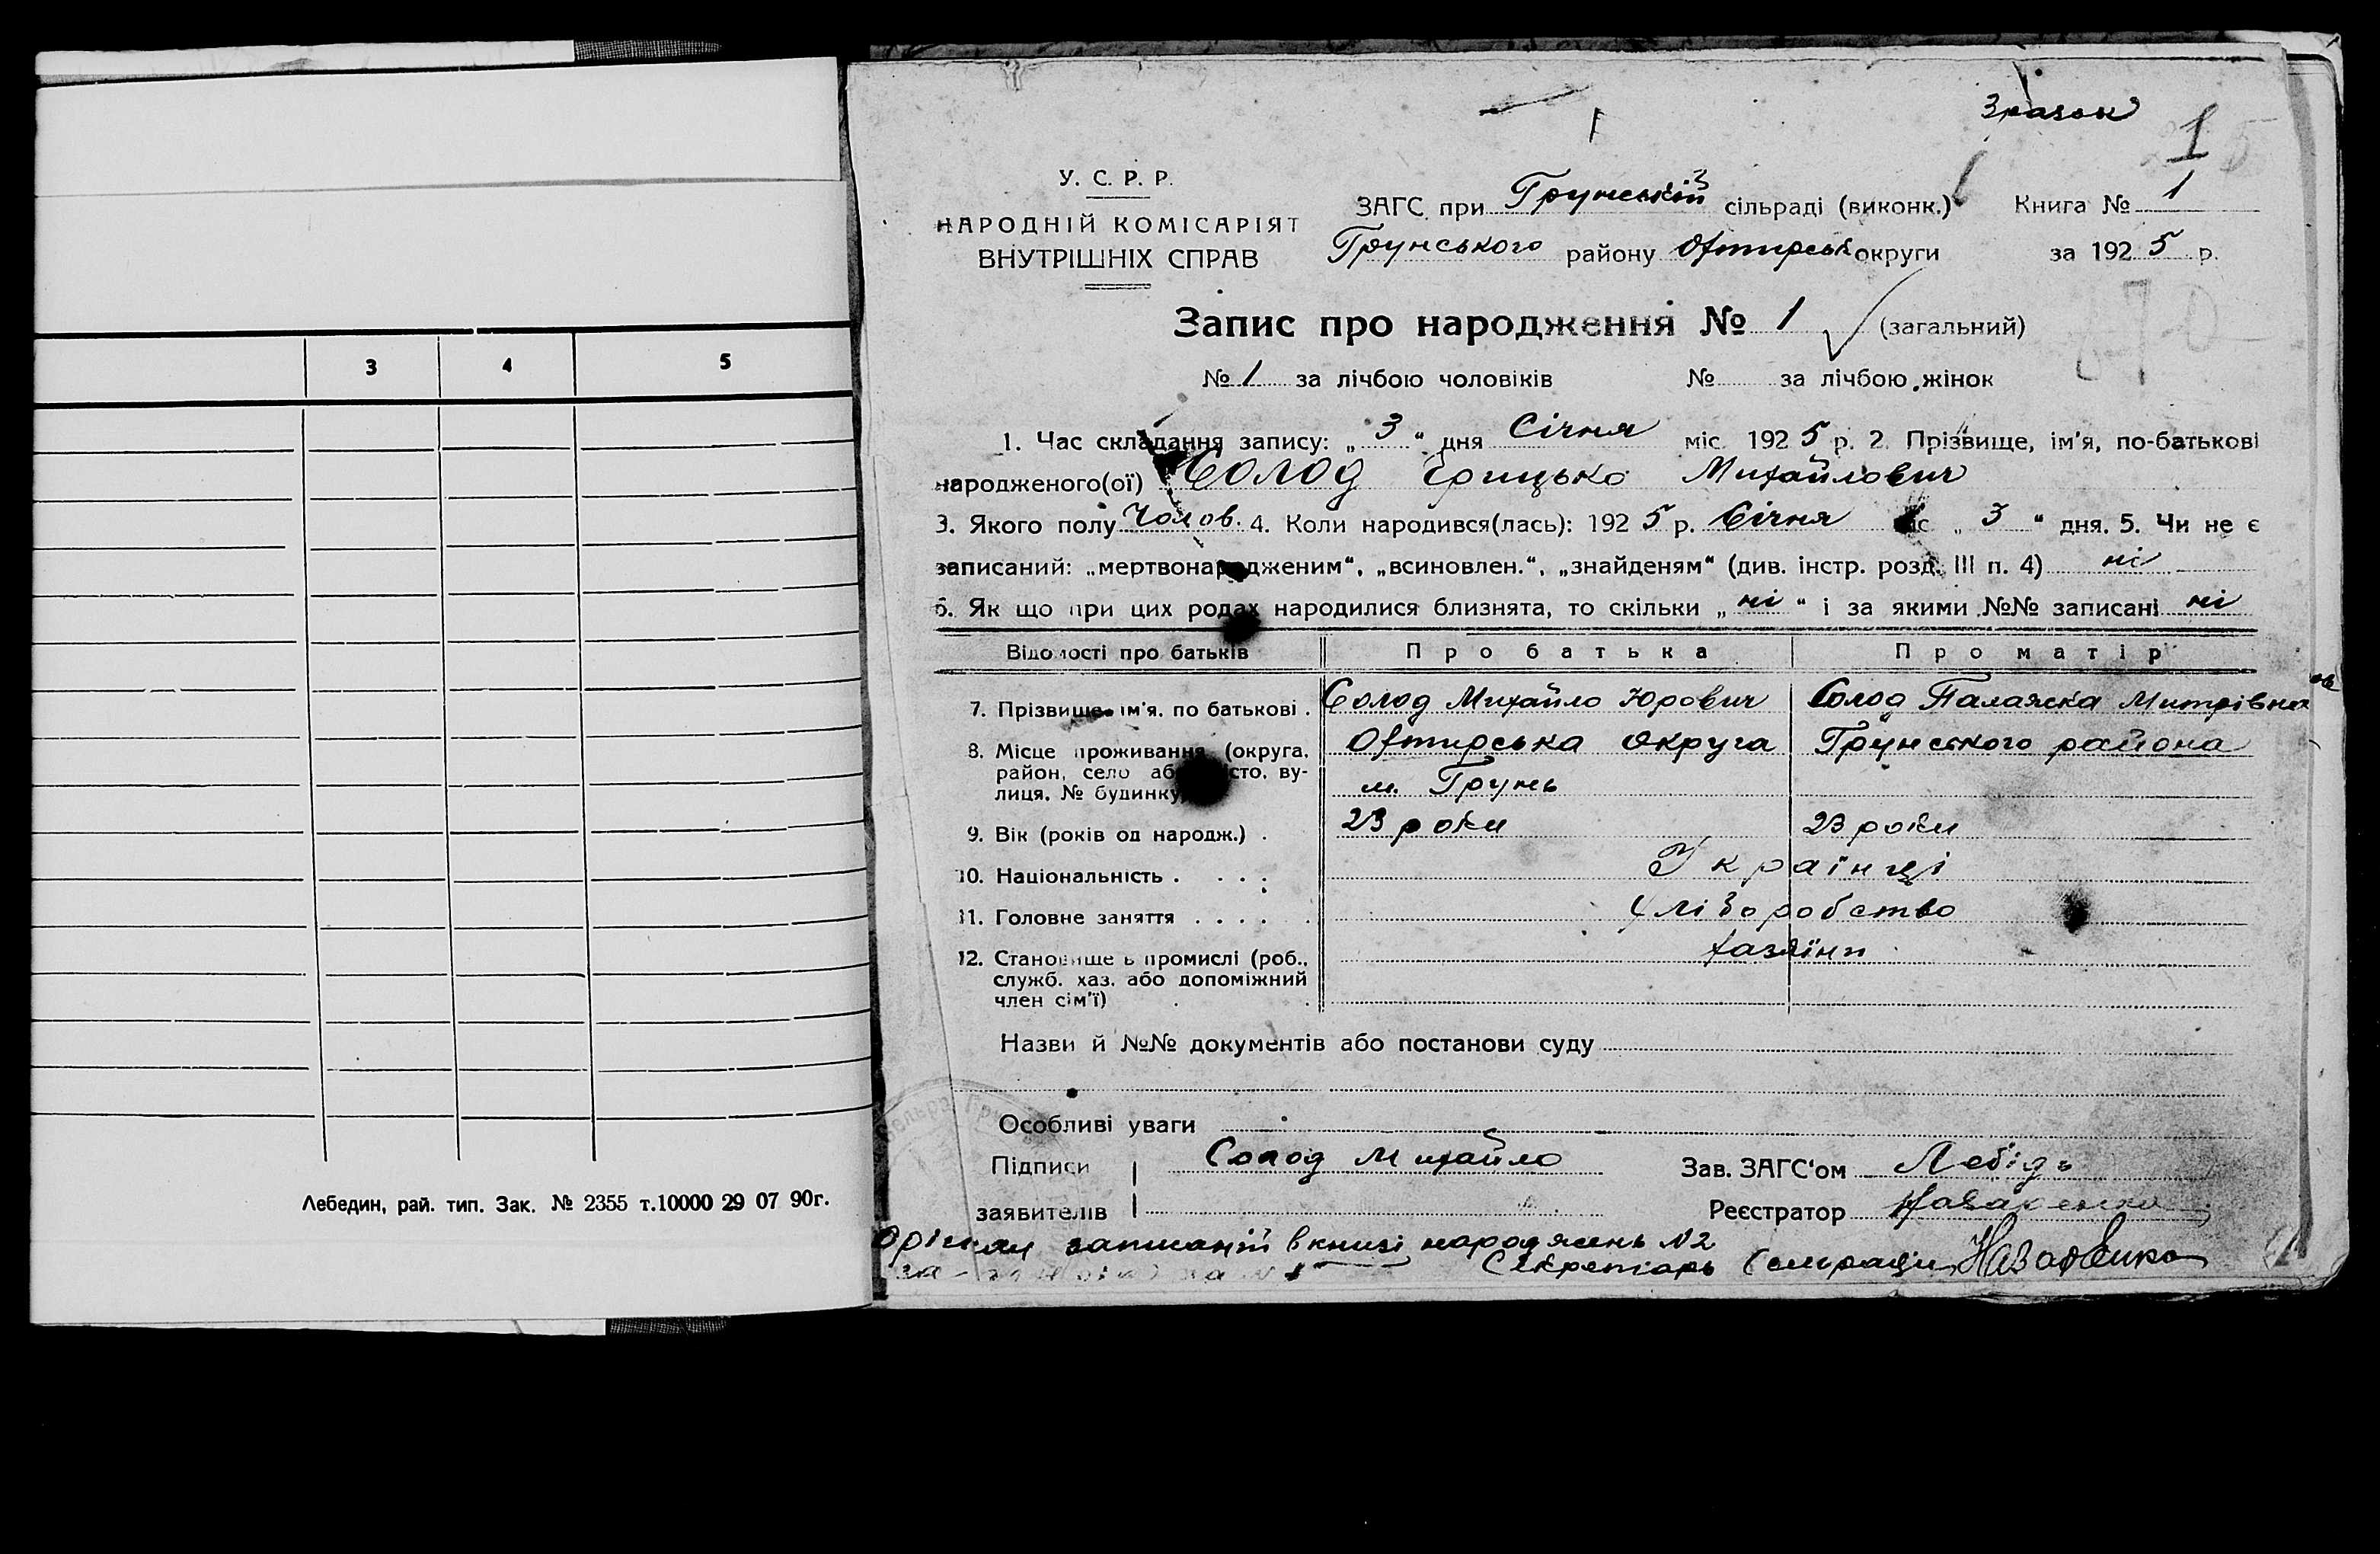 3 4 5
Лебедин, рай. тип. Зак. № 2355 т.10000 29 07 90г.
Зразок
1
У. С. Р. Р.
НАРОДНІЙ КОМІСАРІЯТ
ВНУТРІШНІХ СПРАВ
ЗАГС при Грунській сільраді (виконк.) Книга № 1
Грунського району Охтирськ округи за 1925 р.
Запис про народження № 1 (загальний)
№ 1 за лічбою чоловіків № за лічбою жінок
1. Час складання запису: „3“ дня Січня міс. 1925 р. 2. Прізвище, ім'я, по-батькові
народженого(ої) Солод Грицько Михайлович
3. Якого полу Чолов. 4. Коли народився(лась): 1925 р. Січня міс „3“ дня. 5. Чи не є
записаний: „мертвонародженим“, „всиновлен.“, „знайденям“ (див. інстр. розд. III п. 4) ні
6. Як що при цих родах народилися близнята, то скільки „ні“ і за якими №№ записані ні
Відомості про батьків Про батька Про матір
7. Прізвище, ім'я, по батькові . Солод Михайло Юрович Солод Палажка Митрівна
8. Місце проживання (округа, Охтирська округа Грунського района
район, село або місто, ву- м. Грунь
лиця, № будинку)
9. Вік (років од народж.) . 23 роки 23 роки
10. Національність . . . . Українці
11. Головне заняття . . . . . Хліборобство
12. Становище в промислі (роб., хазяїни
служб. хаз. або допоміжний
член сім'ї) . .
Назви й №№ документів або постанови суду
Особливі уваги
Підписи Солод Михайло Зав. ЗАГС'ом Лебідь
заявителів Реєстратор Назаренко
записаній в книзі народжень № 2
Секретарь Сельради Назаренко